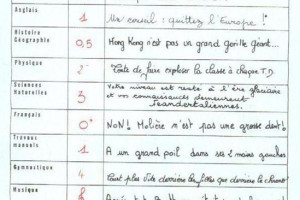 Anglais 1 Un conseil : quittez l'Europe !
Histoire
Géographie 0,5 Hong Kong n'est pas un grand gorille géant...
Physique 2 Tente de faire exploser la classe à chaque T.D.
Sciences
Naturelles 3 Votre niveau est resté à l'ère glaciaire
et vos connaissances demeurent
Neandertaliennes.
Français 0+ NoN! Molière n'est pas une grosse dent!
Travaux
manuels 1 A un grand poil dans ses 2 mains gauches
Gymnastique 4 Court plus vite derrière les filles que derrière le
Musique